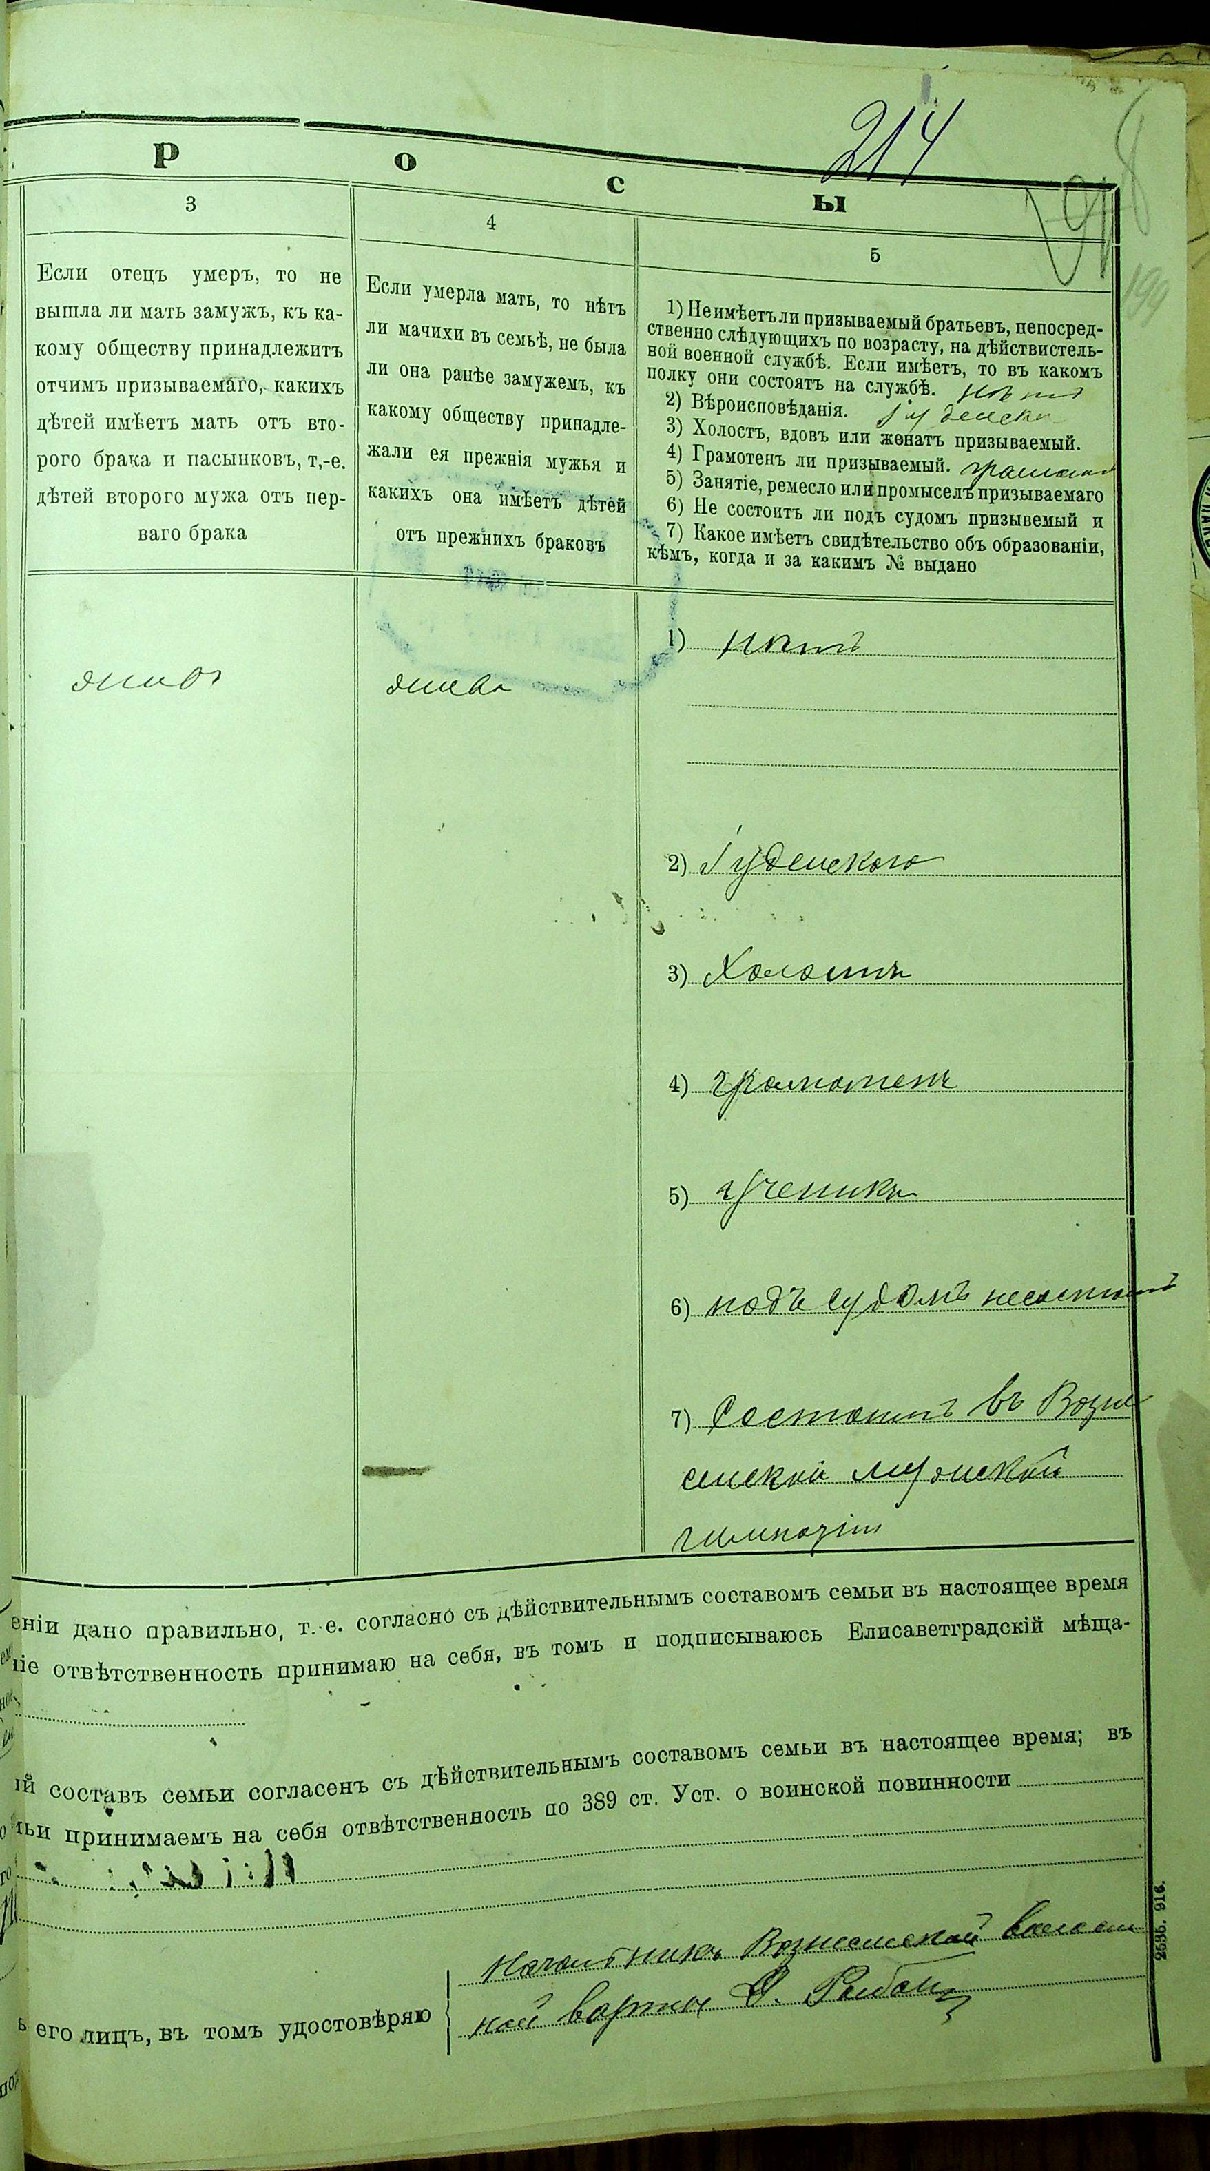 214
Р о с ы
3
Если отецъ умеръ, то не
вышла ли мать замужъ, къ ка-
кому обществу принадлежитъ
отчимъ призываемаго, какихъ
дѣтей имѣетъ мать отъ вто-
рого брака и пасынковъ, т,-е.
дѣтей второго мужа отъ пер-
ваго брака
4
Если умерла мать, то нѣтъ
ли мачихи въ семьѣ, не была
ли она ранѣе замужемъ, къ
какому обществу принадле-
жали ея прежнія мужья и
какихъ она имѣетъ дѣтей
отъ прежнихъ браковъ
5
1) Неимѣетъли призываемый братьевъ, непосред-
ственно слѣдующихъ по возрасту, на дѣйствистель-
ной военной службѣ. Если имѣетъ, то въ какомъ
полку они состоятъ на службѣ. нѣтъ
2) Вѣроисповѣданія.
3) Холостъ, вдовъ или женатъ призываемый.
4) Грамотенъ ли призываемый.
5) Занятіе, ремесло или промыселъ призываемаго
6) Не состоитъ ли подъ судомъ призывемый и
7) Какое имѣетъ свидѣтельство объ образованіи,
кѣмъ, когда и за какимъ № выдано
живъ
жива
1) нѣтъ
2) Іудейскаго
3) Холостъ
4) грамотенъ
5) ученикъ
6) подъ судомъ несостоитъ
7) Состоитъ въ Возне
сенской мужской
гимназіи
еніи дано правильно, т.-е. согласно съ дѣйствительнымъ составомъ семьи въ настоящее время
ніе отвѣтственность принимаю на себя, въ томъ и подписываюсь Елисаветградскій мѣща-
ій составъ семьи согласенъ съ дѣйствительнымъ составомъ семьи въ настоящее время; въ
мьи принимаемъ на себя отвѣтственность по 389 ст. Уст. о воинской повинности
Начальникъ Вознесенской волост
ной варты
ь его лицъ, въ томъ удостовѣряю